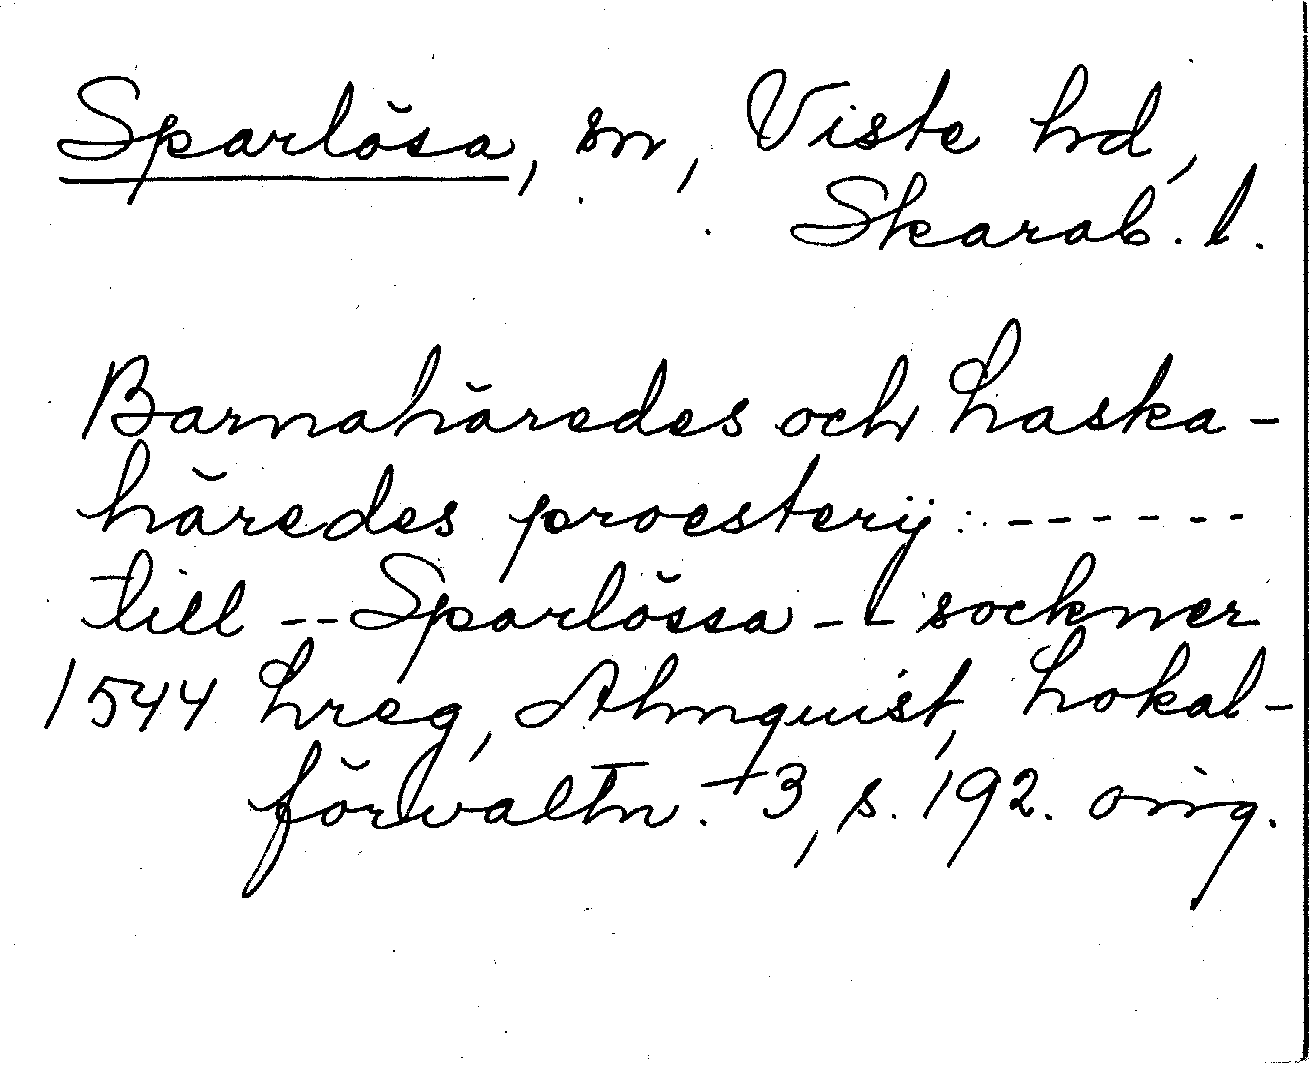 Sparlösa, sn, Viste hd,
Skarab. l.
Barnahäredes och Laska-
häredes proesterij: ------
till -- Sparlössa -- sockner
1544 hreg, Almquist, Lokal-
förvaltn. 3, s. 192. omg.